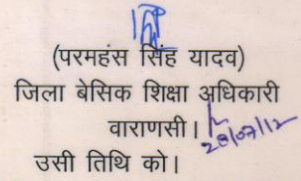 (परमहंस सिंह यादव)
जिला बेसिक शिक्षा अधिकारी
वाराणसी।
उसी तिथि को।